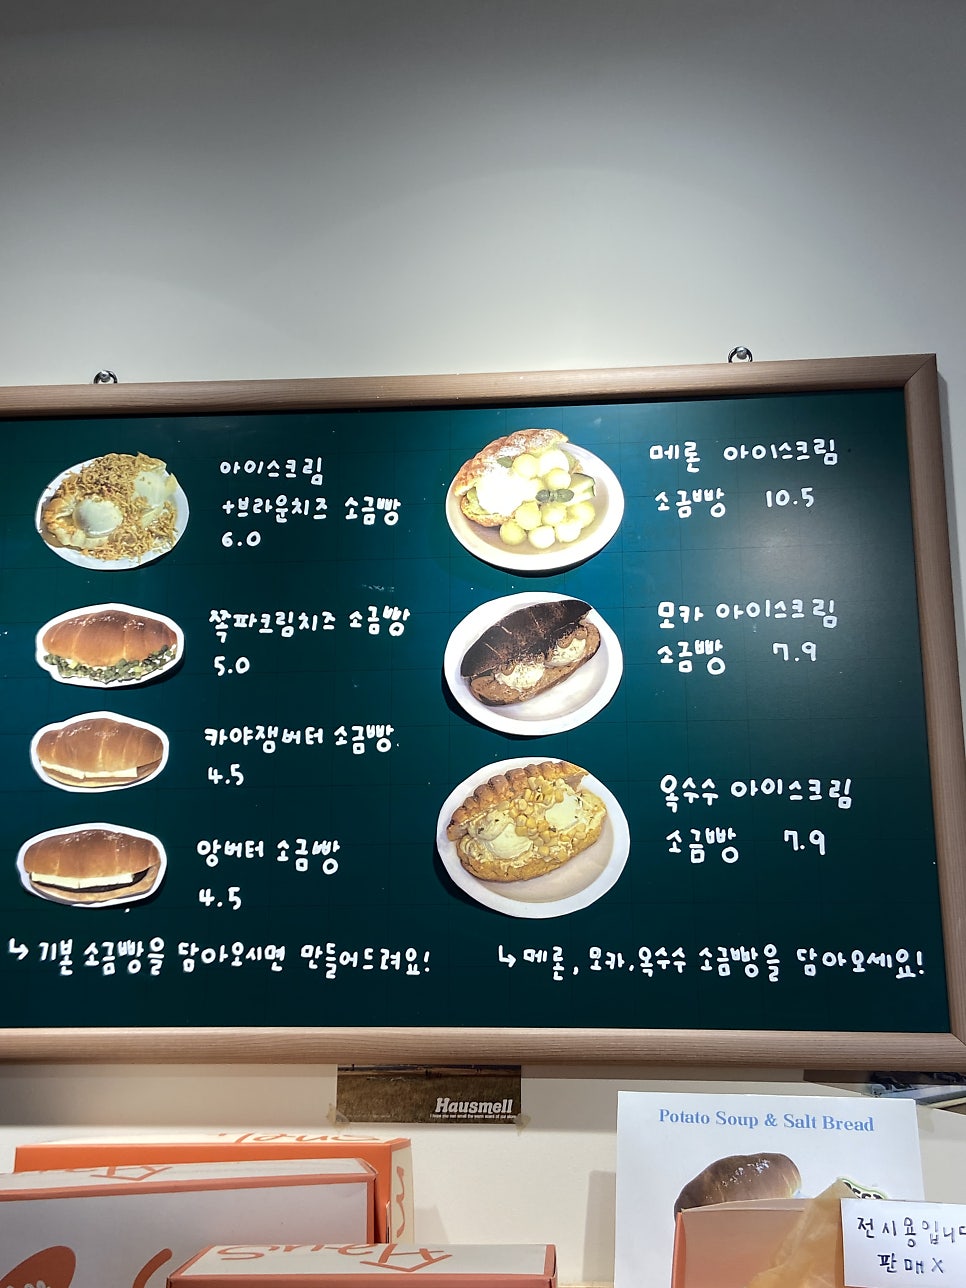 아이스크림
+브라운치즈 소금빵
6.0
쪽파크림치즈 소금빵
5.0
카야잼버터 소금빵
4.5
앙버터 소금빵
4.5
↳ 기본 소금빵을 담아오시면 만들어드려요!
메론 아이스크림
소금빵 10.5
모카 아이스크림
소금빵 7.9
옥수수 아이스크림
소금빵 7.9
↳ 메론, 모카, 옥수수 소금빵을 담아오세요!
Hausmell
Potato Soup & Salt Bread
전시용입니다
판매 X